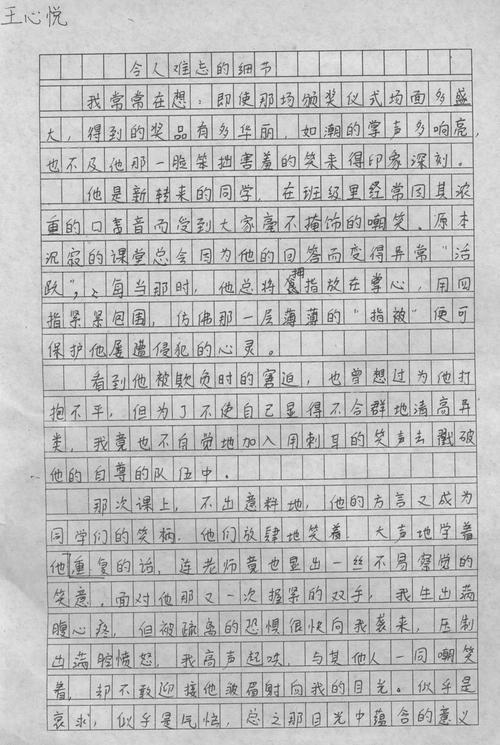 王心悦
令人难忘的细节
我常常在想：即使那场颁奖仪式场面多盛
大，得到的奖品有多华丽，如潮的掌声多响亮，
也不及他那一脸笨拙害羞的笑来得印象深刻。
他是新转来的同学，在班级里经常因其浓
重的口音而受到大家毫不掩饰的嘲笑。原本
沉寂的课堂总会因为他的回答而变得异常“活
跃”，每当那时，他总将拇指放在掌心，用四
指紧紧包围，仿佛那一层薄薄的“指被”便可
保护他屡遭侵犯的心灵。
看到他被欺负时的窘迫，也曾想过为他打
抱不平，但为了不使自己显得不合群地清高异
类，我竟也不自觉地加入用刺耳的笑声去戳破
他的自尊的队伍中。
那次课上，不出意料地，他的方言又成为
同学们的笑柄，他们放肆地笑着，大声地学着
他重复的话，连老师竟也显出一丝不易察觉的
笑意。面对他那又一次握紧的双手，我生出满
腹心疼，但被疏离的恐惧很快向我袭来，压制
出满腔愤怒，我高声起哄，与其他人一同嘲笑
着，却不敢迎接他波眉射向我的目光。似乎是
哀求，似乎是气恼，总之那目光中蕴含的意义